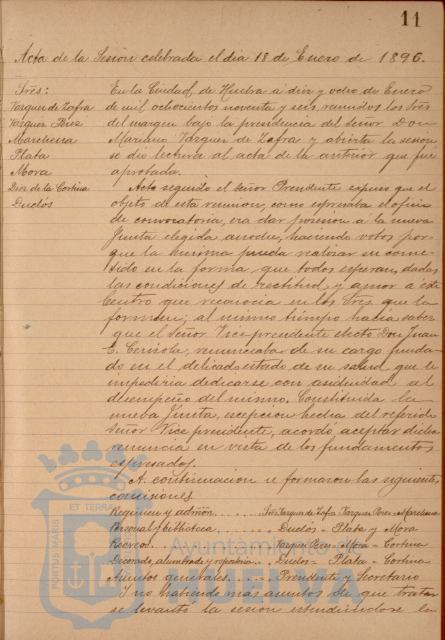 11
Acta de la Sesion celebrada el dia 18 de Enero de 1896.
Sres:
Vazquez de Zafra
Vazquez Perez
Marchena
Plata
Mora
Diaz de la Cortina
Duclós
En la Ciudad de Huelva a diez y ocho de Enero
de mil ochocientos noventa y seis, reunidos los Sres
del margen bajo la presidencia del Señor Don
Mariano Vazquez de Zafra y abierta la sesion
se dió lectura al acta de la anterior que fué
aprobada.
Acto seguido el Señor Presidente expuso que el
objeto de esta reunion, como expresaba el oficio
de convocatoria, era dar posesion a la nueva
Junta elegida anoche, haciendo votos por
que la misma pueda realizar su come-
tido en la forma, que todos esperan, dadas
las condiciones de rectitud y amor a este
Centro que reconocia en los Sres que la
forman; al mismo tiempo hacia saber
que el Señor Vice-presidente electo Don Juan
C. Cerisola, renunciaba de su cargo funda-
do en el delicado estado de su salud que le
impediria dedicarse con asiduidad al
desempeño del mismo. Constituida la
nueva Junta, excepcion hecha del referido
Señor Vice presidente, acordó aceptar dicha
renuncia en vista de los fundamentos
expresados.
A continuacion se formaron las siguientes
comisiones
Regimen y admon..... Sres Vazquez de Zafra Vazquez Perez - Marchena
Personal y biblioteca...... Duclós - Plata y Mora
Recreos...... Vazquez Perez - Mora - Cortina
Decorado, alumbrado y reposteria.. Duclos - Plata - Cortina
Asuntos generales..... Presidente y Secretario
Y no habiendo mas asuntos de que tratar
se levantó la sesion extendiendose la
PORTUS MARIS ET TERRAE
Ayuntamiento de
HUELVA